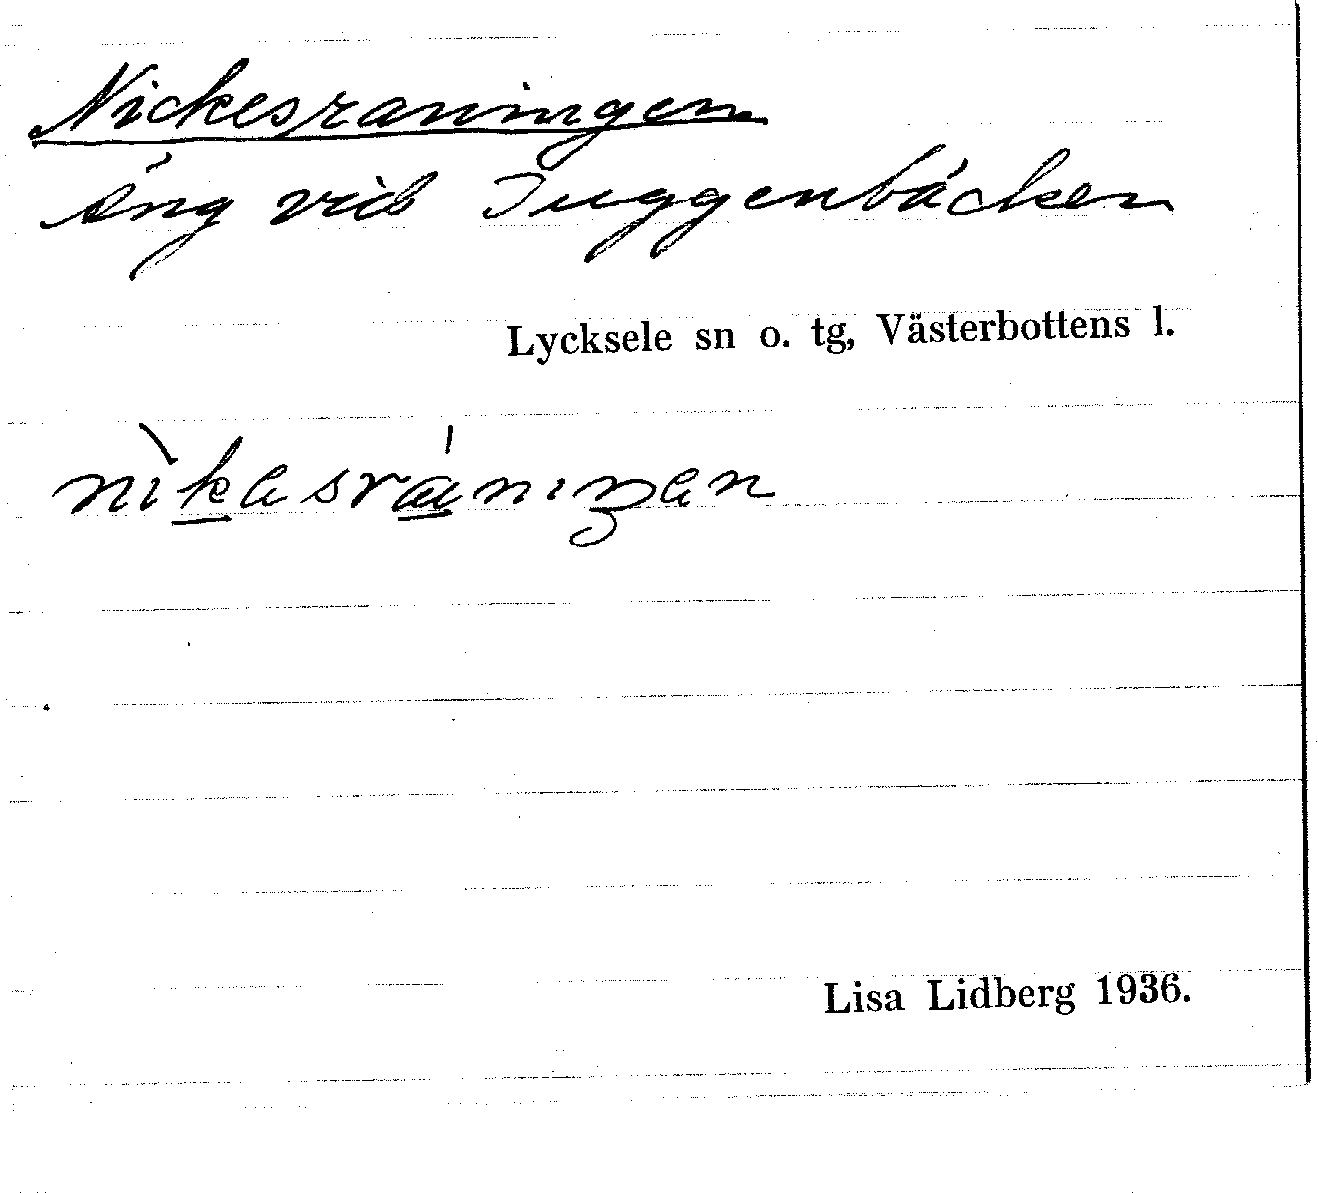 Nickesraningen
äng vid Tuggenbäcken
Lycksele sn o. tg, Västerbottens l.
nìkesrániŋen
Lisa Lidberg 1936.